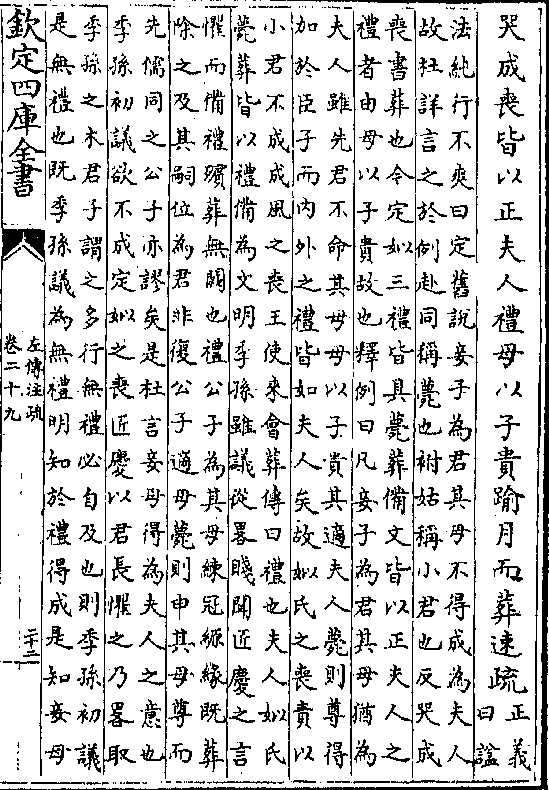 哭成喪皆以正夫人禮母以子貴踰月而葬速疏正義曰諡
法純行不爽曰定舊說妾子為君其母不得成為夫人
故杜詳言之於例赴同稱薨也祔姑稱小君也反哭成
喪書葬也今定姒三禮皆具薨葬備文皆以正夫人之
禮者由母以子貴故也釋例曰凡妾子為君其母猶為
夫人雖先君不命其母母以子貴其適夫人薨則尊得
加於臣子而內外之禮皆如夫人矣故姒氏之喪責以
小君不成成風之喪王使來會葬傳曰禮也夫人姒氏
薨葬皆以禮備為文明季孫雖議從畧賤聞匠慶之言
懼而備禮殯葬無闕也禮公子為其母練冠縓緣既葬
除之及其嗣位為君非復公子適母薨則申其母尊而
先儒同之公子亦謬矣是杜言妾母得為夫人之意也
季孫初議欲不成定姒之喪匠慶以君長懼之乃畧取
季孫之木君子謂之多行無禮必自及也則季孫初議
是無禮也既季孫議為無禮明知於禮得成是知妾母
欽定四庫全書
左傳注疏
卷二十九
二十二